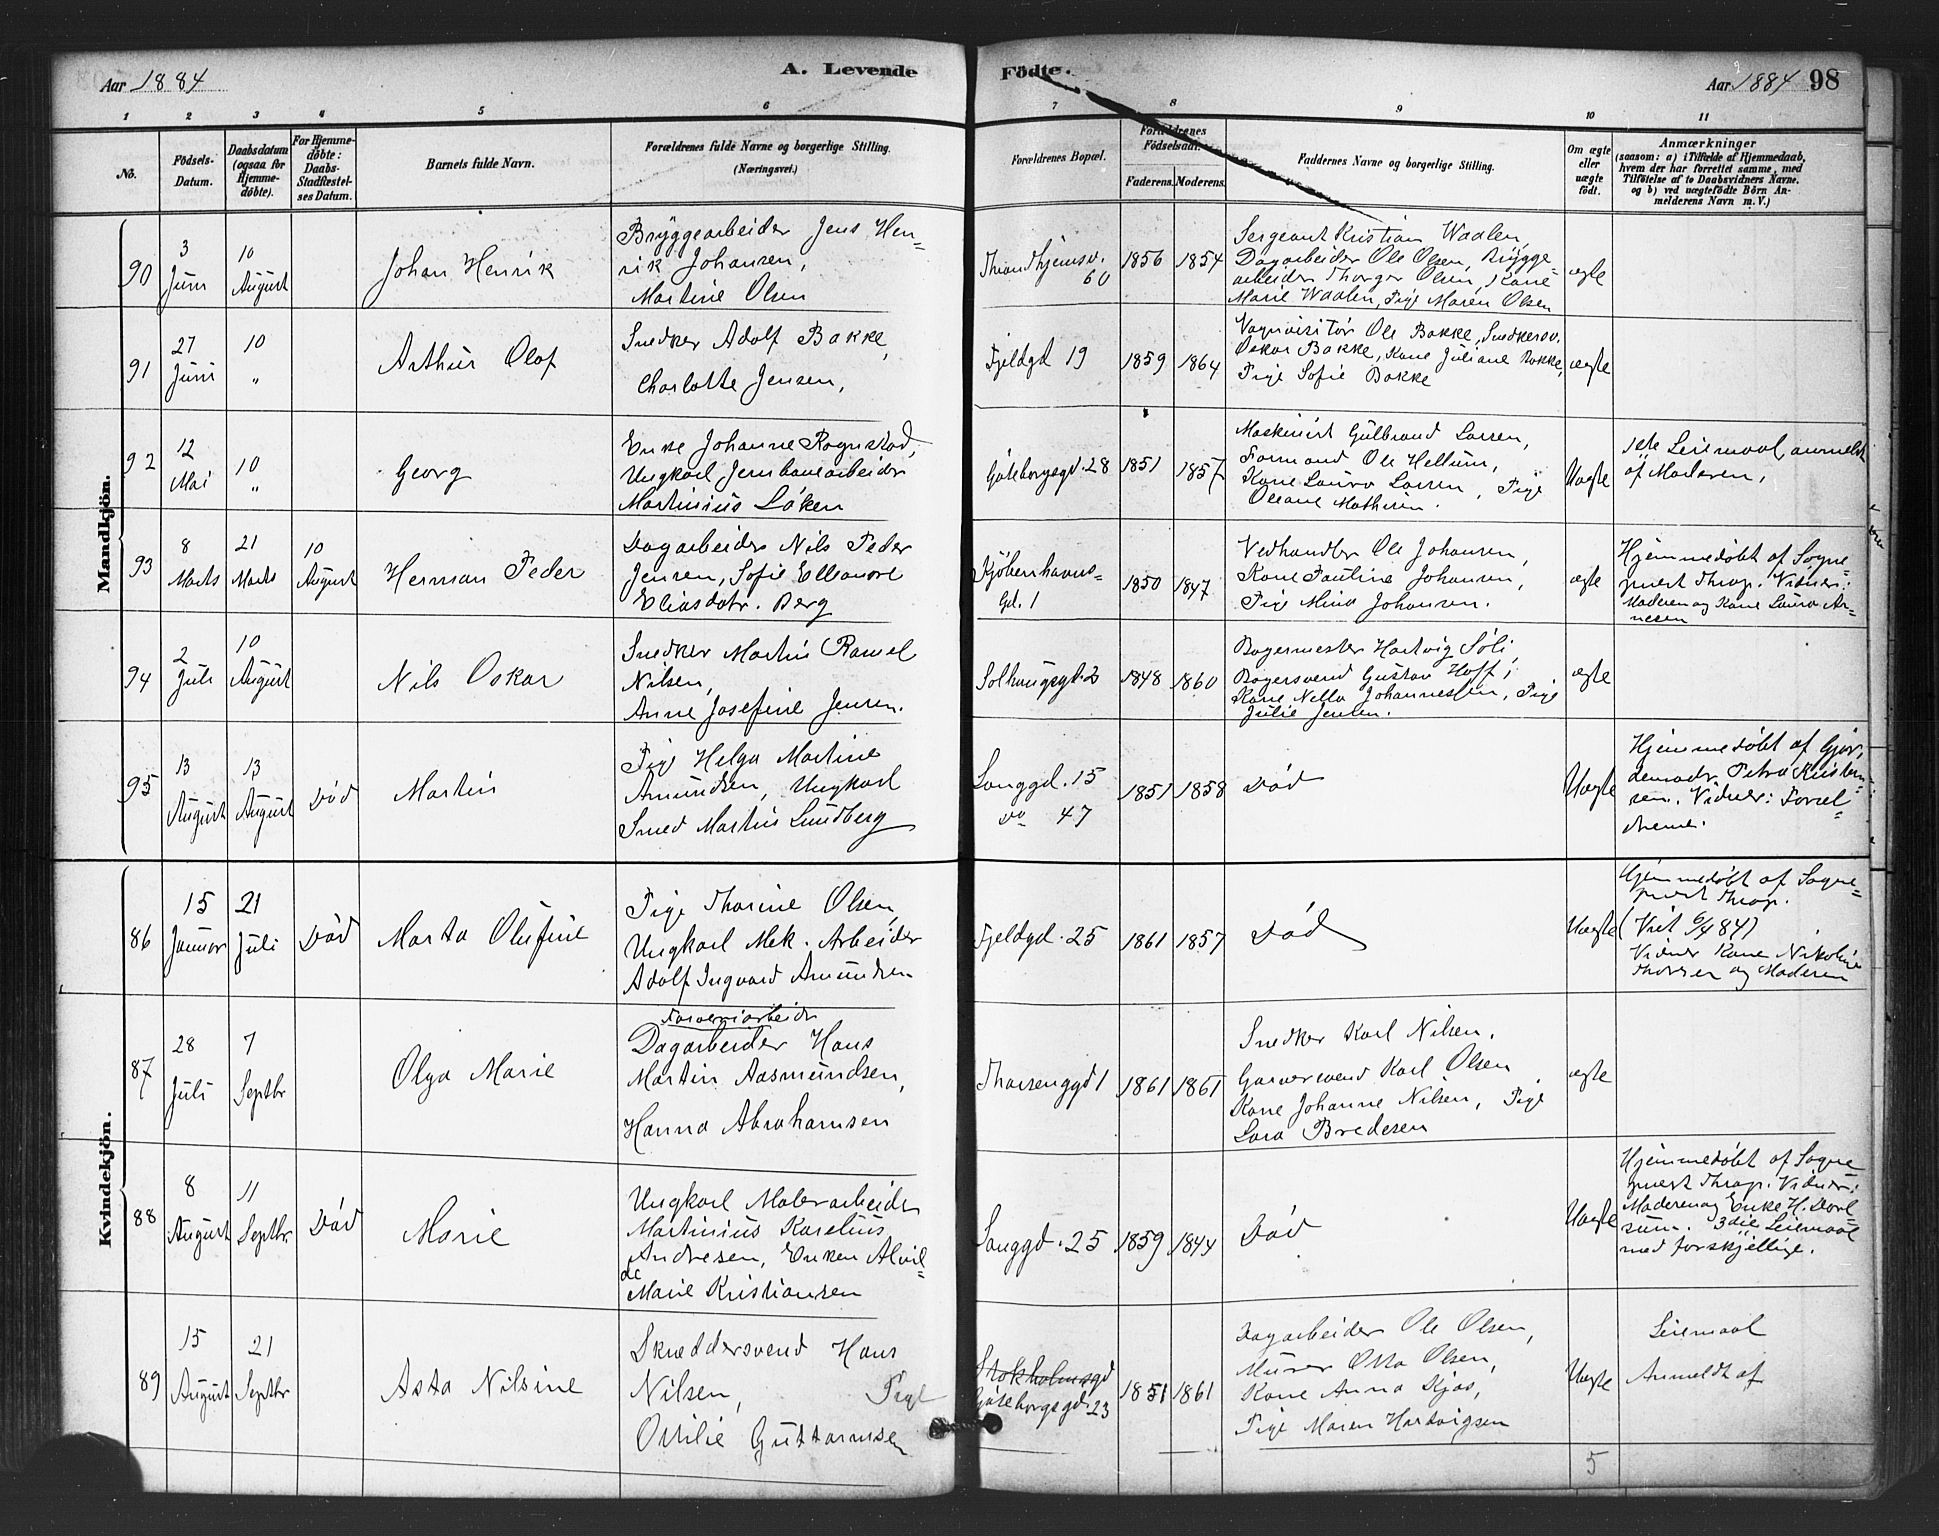 Aar 1884
A. Levende
Fødte.
Aar 1884 98
1 2 3 4 5 6 7 8 9 10 11
No.
Fødsels-Datum.
Daabsdatum (ogsaa for Hjemmedøbte).
For Hjemmedøbte: Daabs-Stadfæstelses Datum.
Barnets fulde Navn.
Forældrenes fulde Navne og borgerlige Stilling.
(Næringsvei.)
Forældrenes Bopæl.
Forældrenes Fødselsaar.
Faderens. Moderens.
Faddernes Navne og borgerlige Stilling.
Om ægte eller uægte født.
Anmærkninger
(saasom: a) i Tilfælde af Hjemmedaab, hvem der har forrettet samme, med Tilføielse af to Daabsvidners Navne, og b) ved uægtefødte Børn Anmelderens Navn m. V.)
Mandkjøn.
90
3 Juni
10 August
Johan Henrik
Bryggearbeider Jens Hen=
rik Johansen,
Martine Olsen
Throndhjemsv.
60
1856 1854
Sergeant Kristian Waalen,
Dagarbeider Ole Olsen, Brygge=
arbeider Thorger Olsen, Kone
Marie Waalen, Pige Maren Olsen
ægte
91
27 Juni
10 "
Arthur Olaf
Snedker Adolf Bakke,
Charlotte Jensen,
Fjeldgd 19
1859 1864
Vognvisitør Ole Bakke, Snedkersv.
Oskar Bakke, Kone Juliane Bakke,
Pige Sofie Bakke
ægte
92
12 Mai
10 "
Georg
Enke Johanne Rognstad,
Ungkarl Jernbanearbeider
Martinius Løken
Gøteborgsgd. 28
1851 1857
Maskinist Gulbrand Larsen,
Formand Ole Hellum,
Kone Laura Larsen, Pige
Oleane Mathisen.
Uægte
1ste Leiemaal, anmeldt
af Moderen,
93
8 Marts
21 Marts
10 August
Herman Peder
Dagarbeider Nils Peder
Jensen, Sofie Elleonore
Eliasdatr. Berg
Kjøbenhavns-
Gd. 1
1850 1847
Vedhandler Ole Johansen,
Kone Pauline Johansen,
Pige Mina Johansen.
ægte
Hjemmedøbt af Sogne=
prest Thrap. Vidner:
Moderen og Kone Laura Ar=
nesen
94
2 Juli
10 August
Nils Oskar
Snedker Martin Ramel
Nilsen,
Anne Josefine Jensen.
Solhaugsgd. 2
1848 1860
Bagermester Hartvig Søli,
Bagersvend Gustav Hoff,
Kone Nella Johannessen, Pige
Julie Jensen.
ægte
95
13 August
13 August
Død
Martin
Pige Helga Martine
Amundsen, Ungkarl
Smed Martin Lundberg
Langgd. 15
do 47
1851 1858
Død
Uægte
Hjemmedøbt af Gjor=
demodr. Petra Kristen=
sen. Vidner: Foræl=
drene.
Kvindekjøn.
86
15 Januar
21 Juli
Død
Marta Olufine
Pige Thorine Olsen
Ungkarl Mek. Arbeider
Adolf Ingvard Amundsen
Fjeldgd. 25
1861 1857
Død
Uægte
Hjemmedøbt af Sogne=
prest Thrap.
Vidner Kone Nikoline
Thorsen og Moderen
87
28 Juli
7 Septbr
Olga Marie
Garveriarbeider
Dagarbeider Hans
Martin Aasmundsen,
Hanna Abrahamsen
Thorsenggd 1
1861 1861
Snedker Karl Nilsen,
Garversvend Karl Olsen
Kone Johanne Nilsen, Pige
Lara Bredesen
ægte
88
8 August
11 Septbr
Død
Marie
Ungkarl Malerarbeider
Martinius Karelius
Andresen, Enken Alvil=
de
Marie Kristiansen
Langgd. 25
1859 1844
Død
Uægte
Hjemmedøbt af Sogne
prest Thrap. Vidner:
Moderen og Enke H. Dorl
sum. 3die Leiemaal
med forskjellige.
89
15 August
21 Septbr
Asta Nilsine
Skræddersvend Hans
Nilsen, Pige
Otilie Guttormsen
Stokholmsgd
Gøteborgsgd 23
1851 1861
Dagarbeider Ole Olsen,
Murer Otto Olsen,
Kone Anna Kjøs,
Pige Maren Hartvigsen
Uægte
Leiemaal
Anmeldt af
5